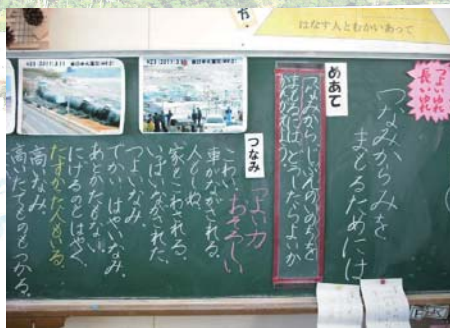 はなす人とむかいあって
つよいゆれ
長いゆれ
つなみからみを
まもるためには
めあて
つなみからじぶんのいのちを
まもるにはどうしたらよいか
つなみ
つよい力
おそろしい
こわい。
車がながされる。
人もしぬ。
家もこわされる。
いっぱいながされた。
つよいなみ。
でかい、はやいなみ。
あとかたもない。
にげるのとはやく、
たすかた人もいる。
高いなみ
高いたてものもつかる。